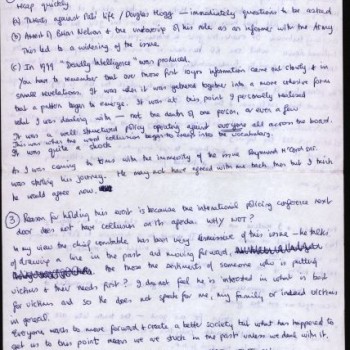 heap quickly
(a) Threats against Pats' life / Douglas Hogg — immediately questions to be asked
(b) Arrest of Brian Nelson & the unearthing of his role as an informer with the Army
This led to a widening of the issue
(c) In 1999 "Deadly Intelligence" was produced.
You have to remember that over those first 10 yrs information came out slowly & in
small revelations. It was when it was gathered together into a more cohesive form
that a pattern began to emerge. It was at this point I personally realised
what I was dealing with — not the death of one person, or even a few
It was a well structured policy operating against everyone all across the board.
This was when the word collusion began to creep into the vocabulary.
It was quite a shock
As I was coming to terms with the immensity of the issue Raymond McCord Snr
was starting his journey. He may not have agreed with me back then but I think
he would agree now.
(3) Reason for holding this event is because the international policing conference next
door does not have collusion on its agenda. WHY NOT?
In my view the chief constable has been very dismissive of this issue – he talks
of drawing a line in the past and moving forward,
Are these the sentiments of someone who is putting
victims & their needs first? I do not feel he is interested in what is best
for victims and so he does not speak for me, my family or indeed victims
in general.
Everyone wants to move forward & create a better society but what has happened to
get us to this point mean we are stuck in the past unless we deal with it,